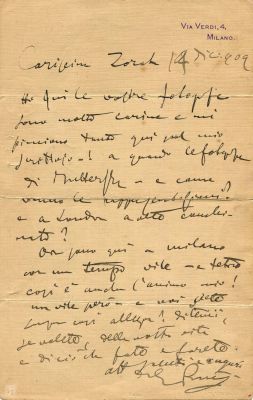 VIA VERDI, 4,
MILANO.
Carissimi Zorah 14 Dic 909
Ho qui le vostre fotografie
sono molto carine e mi
piacciono tanto qui sul mio
scrittoio - e quando le fotografie
di Butterfly - e come
vanno le rappresentazioni?
e a London
?
Or sono qui a Milano
con un tempo vile - e tetro
così è anche l'animo mio!
vile però - e voi siete
sempre così allegre? ditemi,
se volete, della vostra vita
e di ciò che fate e farete.
aff saluti e auguri
del